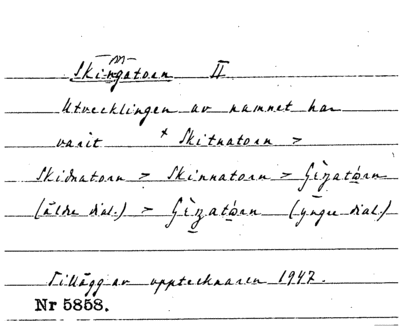 Skinnatorn II
Utvecklingen av namnet har
varit * Skitnatorn >
Skidnatorn > Skinnatorn >
(äldre dial.) > (yngre dial.)
Tillägg av upptecknaren 1947.
Nr 5858.